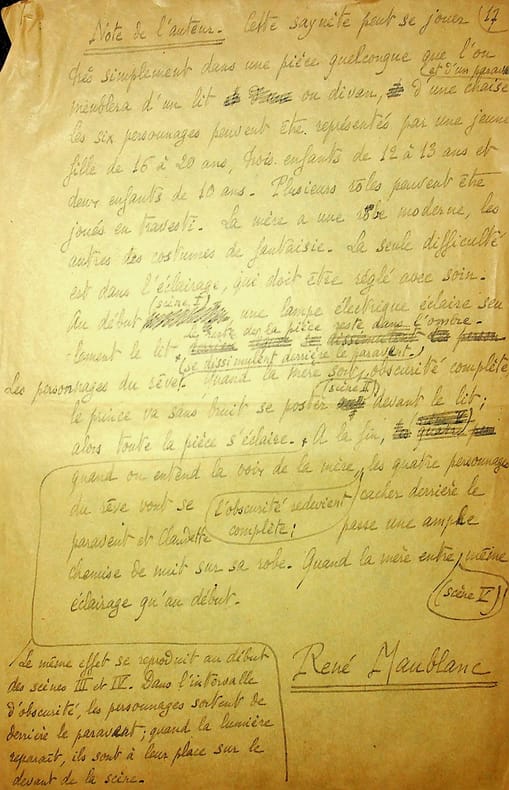 Note de l'auteur. - Cette saynète peut se jouer
17
très simplement dans une pièce quelconque que l'on
(et d'un paravent
meublera d'un lit ou divan, d'une chaise
les six personnages peuvent être représentés par une jeune
fille de 16 à 20 ans, trois enfants de 12 à 13 ans et
deux enfants de 10 ans. - Plusieurs rôles peuvent être
joués en travesti. - La mère a une robe moderne, les
autres des costumes de fantaisie. - La seule difficulté
est dans l'éclairage, qui doit être réglé avec soin. -
(scène I)
Au début une lampe électrique éclaire seu
le reste de la pièce reste dans l'ombre. -
lement le lit
(se dissimulent derrière le paravent.)
Les personnages du rêve. Quand la mère sort, obscurité complète
(scène II)
le prince va sans bruit se poster devant le lit;
alors toute la pièce s'éclaire. + A la fin,
quand on entend la voix de la mère, les quatre personnages
du rêve vont se cacher derrière le
l'obscurité redevient
complète;
paravent et Claudette passe une ample
chemise de nuit sur sa robe. - Quand la mère entre, même
(scène V)
éclairage qu'au début. -
Le même effet se reproduit au début
des scènes III et IV. Dans l'intervalle
d'obscurité, les personnages sortent de
derrière le paravent; quand la lumière
reparaît, ils sont à leur place sur le
devant de la scène. -
René Maublanc